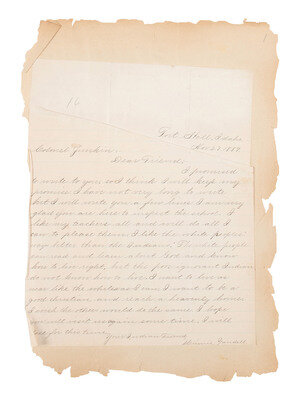 16
Fort Hall, Idaho
Nov 23 1889
Colonel Junkin:
Dear Friend:
I promised
to write to you, so I think I will keep my
promise I have not very long to write
but I will write you a few lines I am very
glad you are here to inspect the school. I
like my teachers all and will do all I
can to please them. I like the white peoples'
way better than the Indians. The white people
can read and learn about God and know
how to live right, but the poor ignorant Indian
do not know how to live I want to live as
near like the whites as I can, I want to be a
good christian, and reach a heavenly home.
I wish the other would do the same. I hope
you will visit us again some time. I will
close for this time.
Your Indian friend
Minnie Yandell